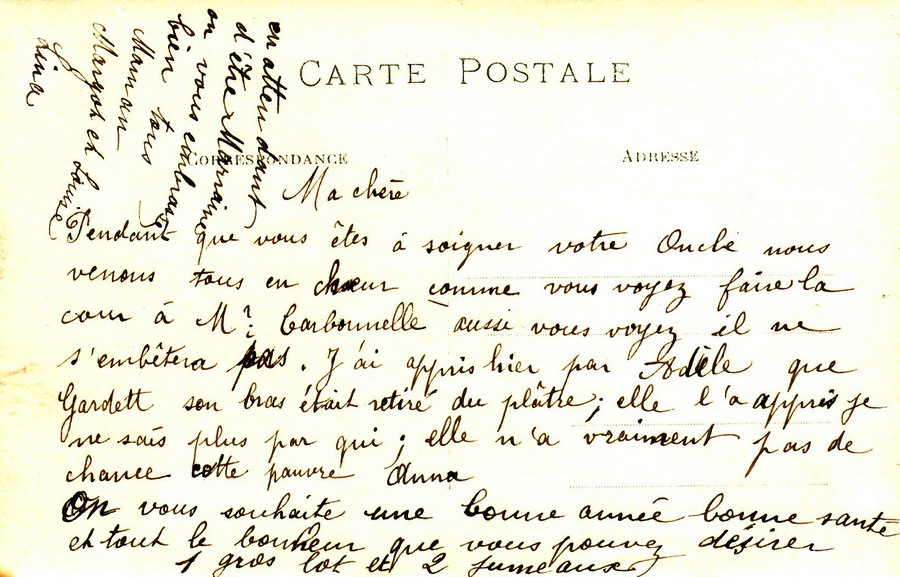 CARTE POSTALE
CORRESPONDANCE
ADRESSE
Ma chère
Pendant que vous êtes à soigner votre Oncle nous
venons tous en chœur comme vous voyez faire la
cour à Mr Carbonnelle aussi vous voyez il ne
s'embêtera pas. J'ai appris hier par Adèle que
Gardett son bras était retiré du plâtre; elle l'a appris je
ne sais plus par qui; elle n'a vraiment pas de
chance cette pauvre Anna
On vous souhaite une bonne année bonne santé
et tout le bonheur que vous pouvez désirer
1 gros lot et 2 jumeaux
en attendant
d'être Marraine
on vous embrasse
bien tous
Maman
Margot et Louise
Lina